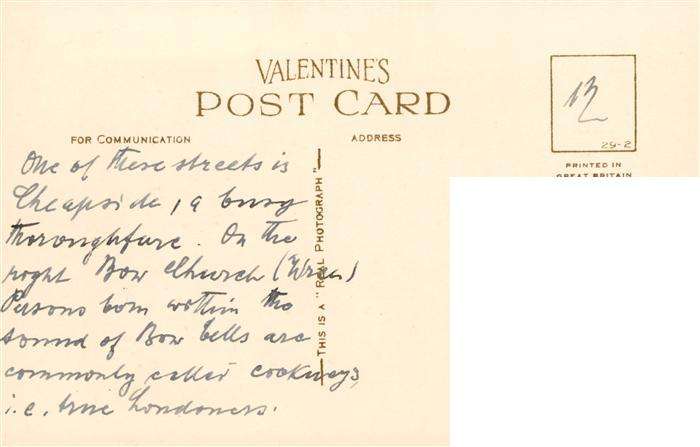 VALENTINE'S
POST CARD
FOR COMMUNICATION
ADDRESS
12
29-2
PRINTED IN
GREAT BRITAIN
THIS IS A "REAL PHOTOGRAPH"
One of these streets is
Cheapside, a busy
thoroughfare. On the
right Bow Church (Wren)
Persons born within the
sound of Bow bells are
commonly called cockneys,
i.e. true Londoners.